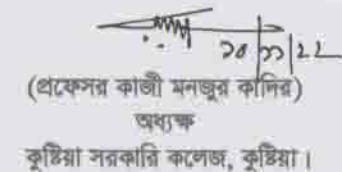 ২০/১১/২২
(প্রফেসর কাজী মনজুর কাদির)
অধ্যক্ষ
কুষ্টিয়া সরকারি কলেজ, কুষ্টিয়া।